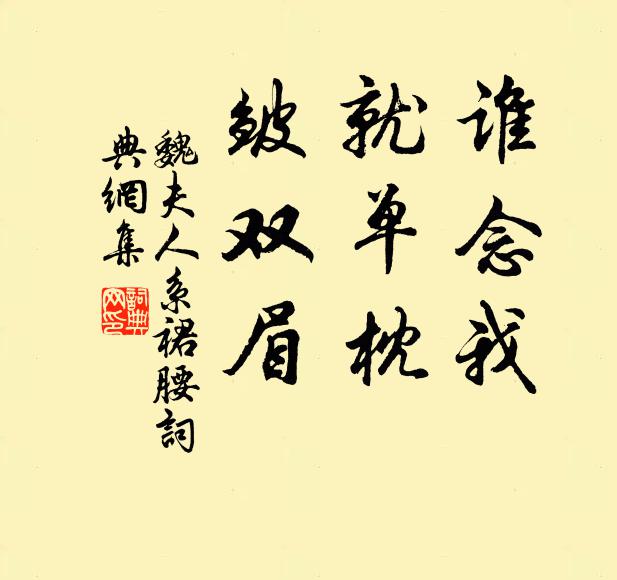 谁念我
就单枕
皱双眉
魏夫人系裙腰詞
典網集
詞典
网印